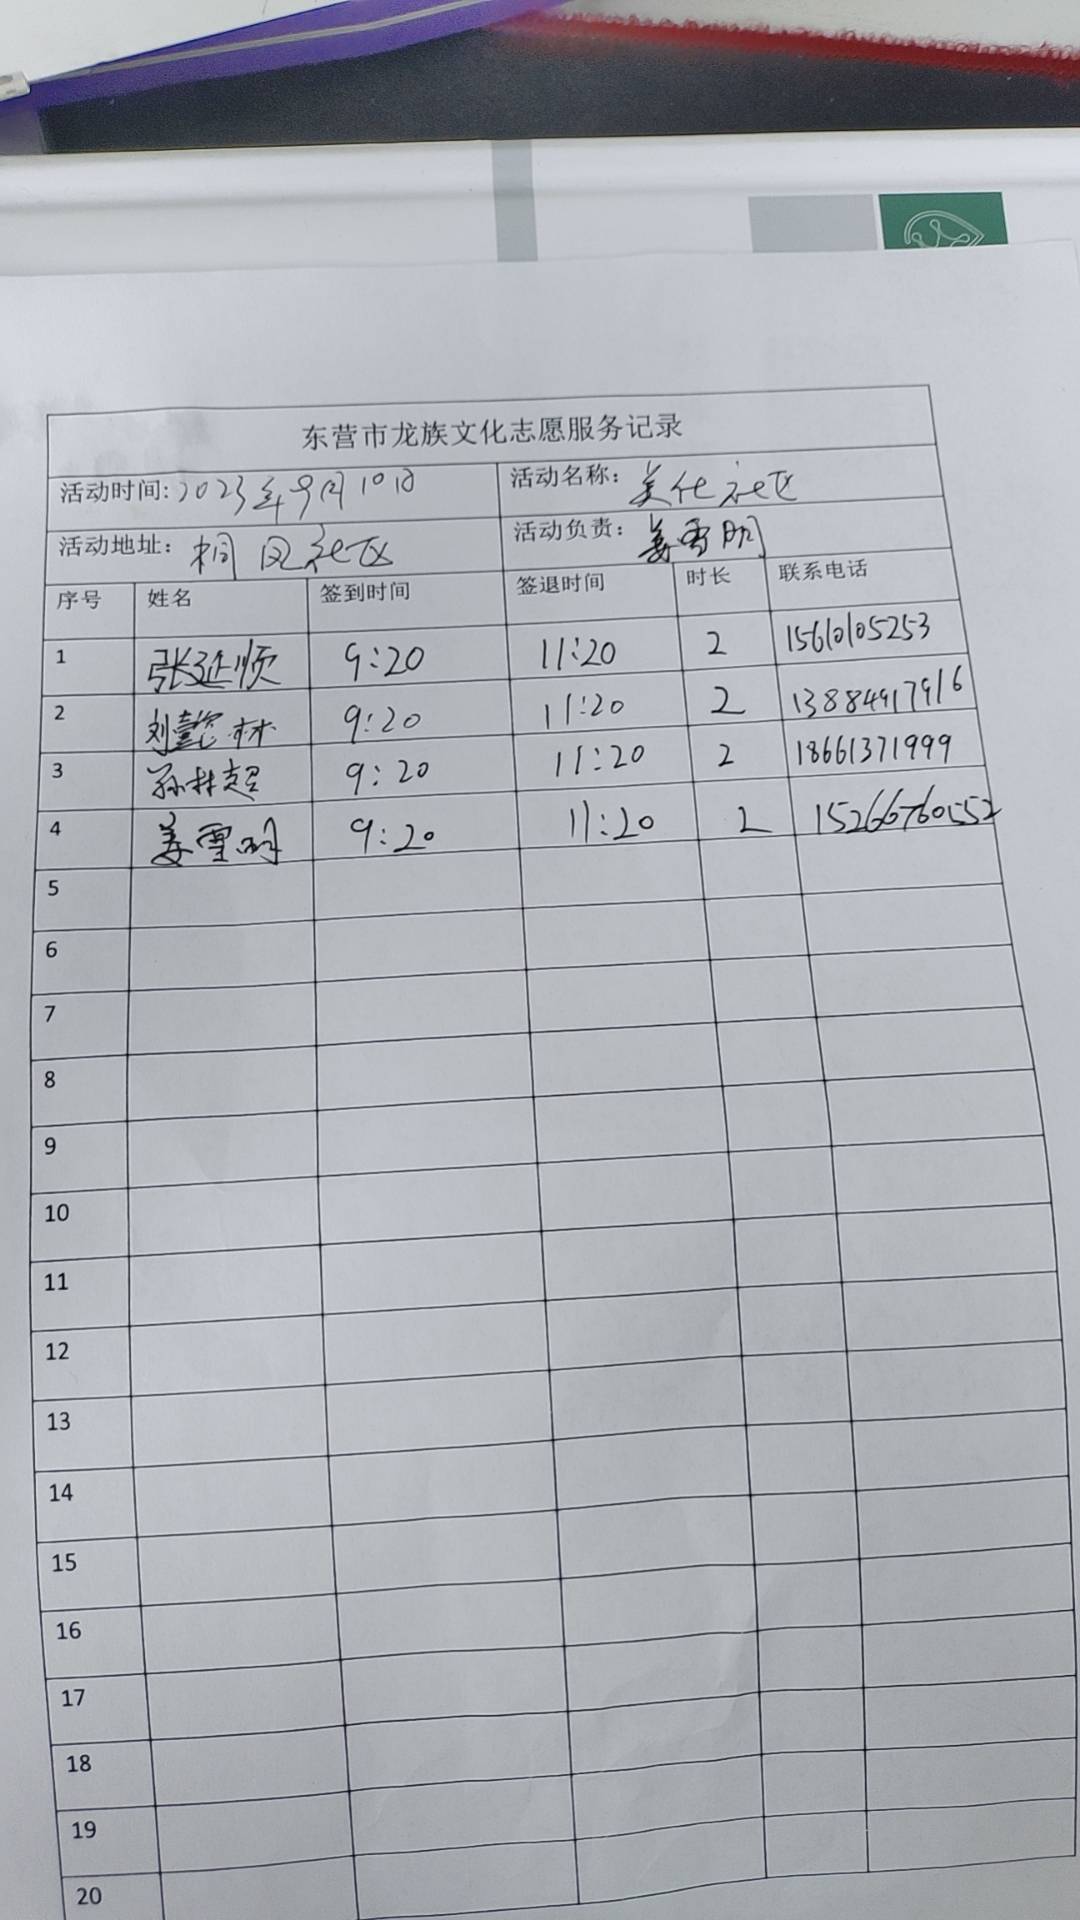 东营市龙族文化志愿服务记录
活动时间: 2023年9月10日 活动名称: 美化社区
活动地址: 桐风社区 活动负责: 姜雪明
序号 姓名 签到时间 签退时间 时长 联系电话
1 张延顺 9:20 11:20 2 15610105253
2 刘懿林 9:20 11:20 2 13884917916
3 孙林超 9:20 11:20 2 18661371999
4 姜雪明 9:20 11:20 2 15266760552
5
6
7
8
9
10
11
12
13
14
15
16
17
18
19
20